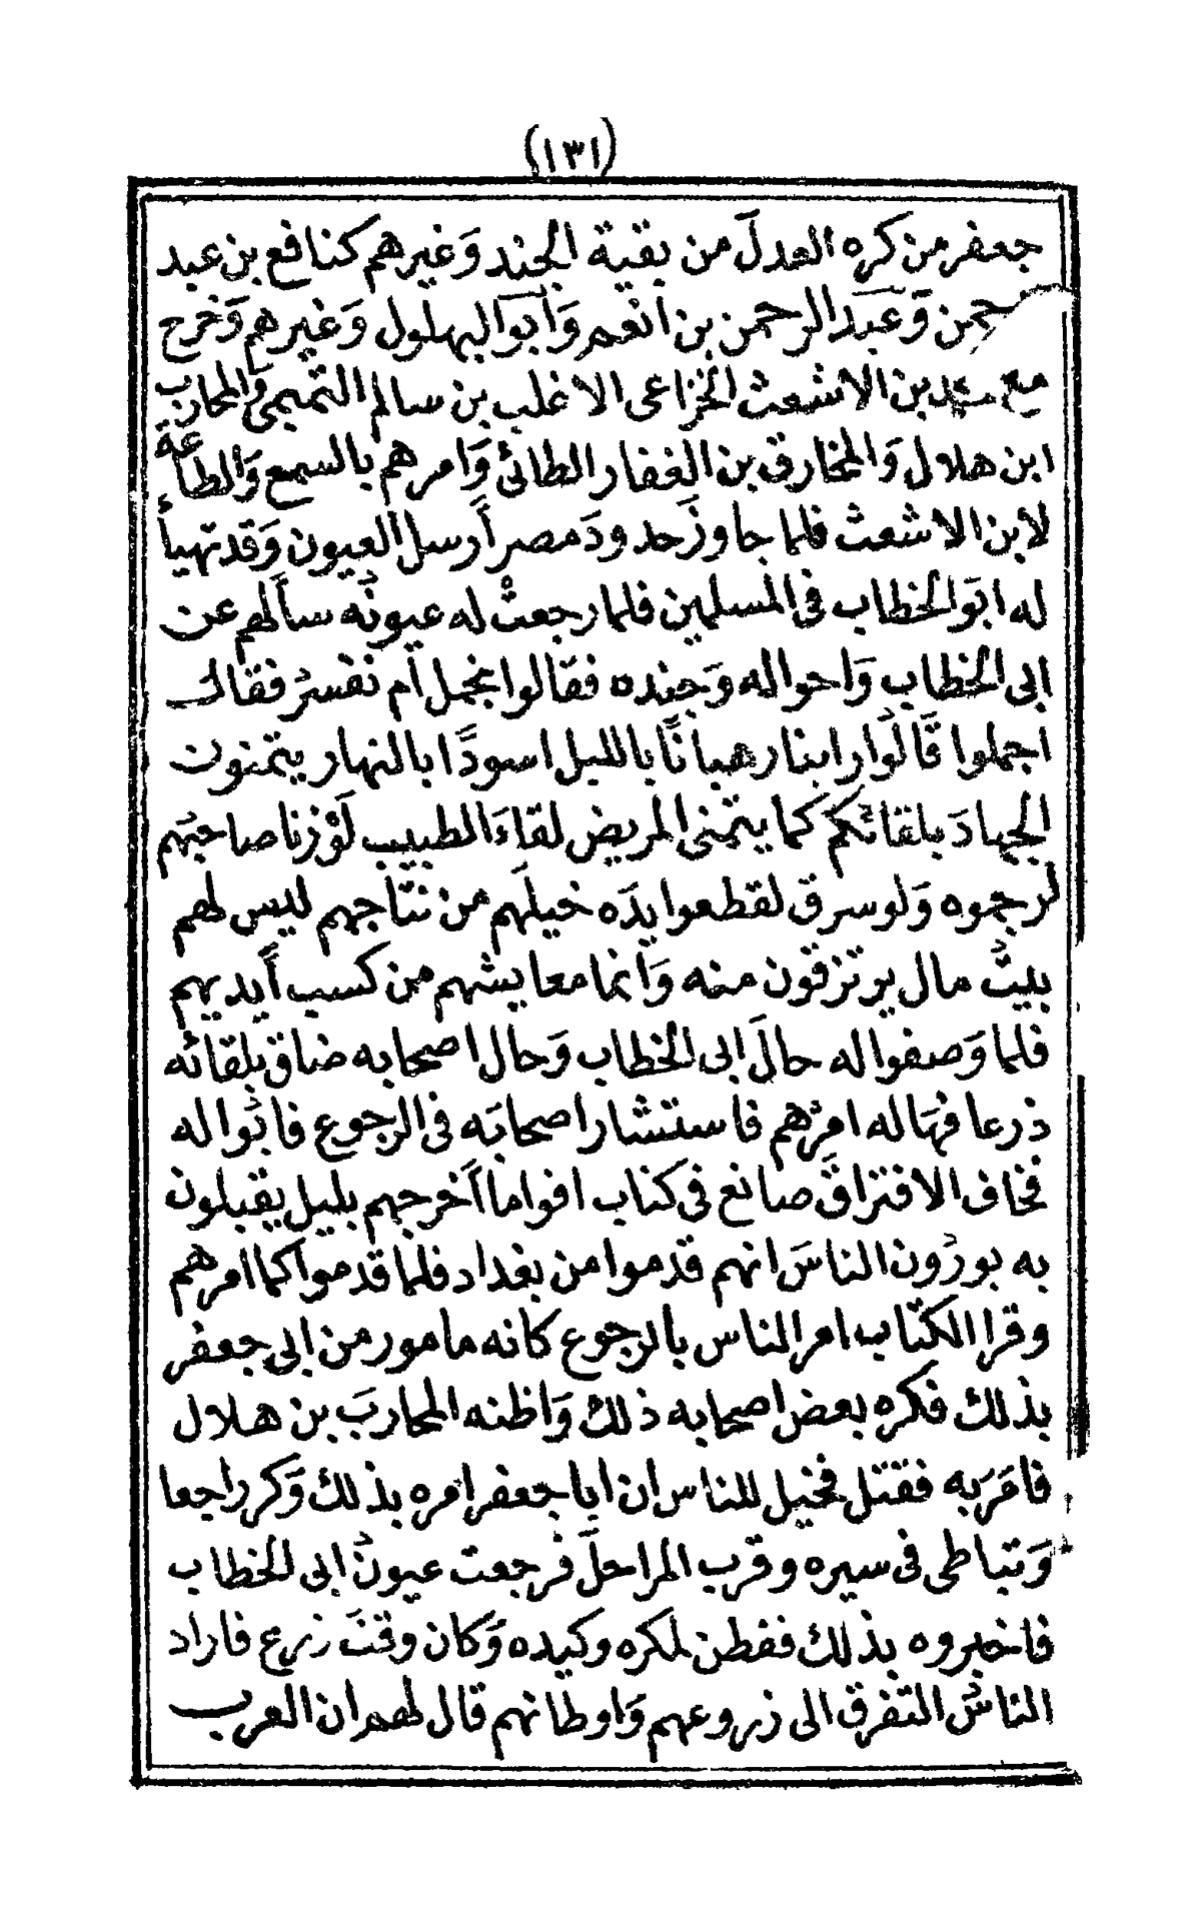 (١٣١)
جعفر من كره العدلَ من بقية الجند وَغيرهم كنافع بن عبد
حمن وَعبد الرحمن بن انعم وَابو البهلول وَغيرهم وَخرج
مع محمد بن الاشعث الخزاعى الاغلب بن سالم التميمى وَالمحارب
ابن هلال وَالمخارق بن الغفار الطائى وَامرهم بالسمع وَالطاعة
لابن الاشعث فلما جاوزَ حدودَ مصر أَرسل العيون وَقد تهيأ
له ابوَ الخطاب فى المسلمين فلما رجعتْ له عيونُه سأَلهم عن
ابى الخطاب وَاحواله وَجنده فقالوا نجمل أم نفسرُ فقال
اجملوا قَالوُا راينا رهباناً بالليل اسودًا بالنهار يتمنون
الجهادَ بلقائكم كما يتمنى المريض لقاءَ الطبيب لَوْ زنا صاحبُهم
لرجموه وَلو سرق لقطعوا يدَه خيلَهم من نتاجهم ليس لهم
بيتُ مال يرتزقون منه وَانما معايشهم من كسب أَيديهم
فلما وَصفوا له حالَ ابى الخطاب وَحال اصحابه ضاق بلقائه
ذرعا فهَاله امرُهم فاستشار اصحابَه فى الرجوع فابَوا له
فخاف الافتراقَ صانع فى كتاب اقواما أَخرجهم بليل يقبلون
به يورُون الناسَ انهم قدموا من بغداد فلما قدموا كما امرهم
وقرا الكتاب امر الناس بالرجوع كانه مامور من ابى جعفر
بذلك فكره بعض اصحابه ذلك وَاظنه المحاربَ بن هلال
فامَر به فقتل فخيل للناس ان ابا جعفر امره بذلك وَكر راجعا
وَتباطى فى سيره وقرب المراحلَ فرجعت عيونُ ابى الخطاب
فاخبروه بذلك ففطن لمكره وكيده وَكان وقتَ زرع فاراد
الناسُ التفرق الى زروعهم وَاوطانهم قال لهم ان العرب